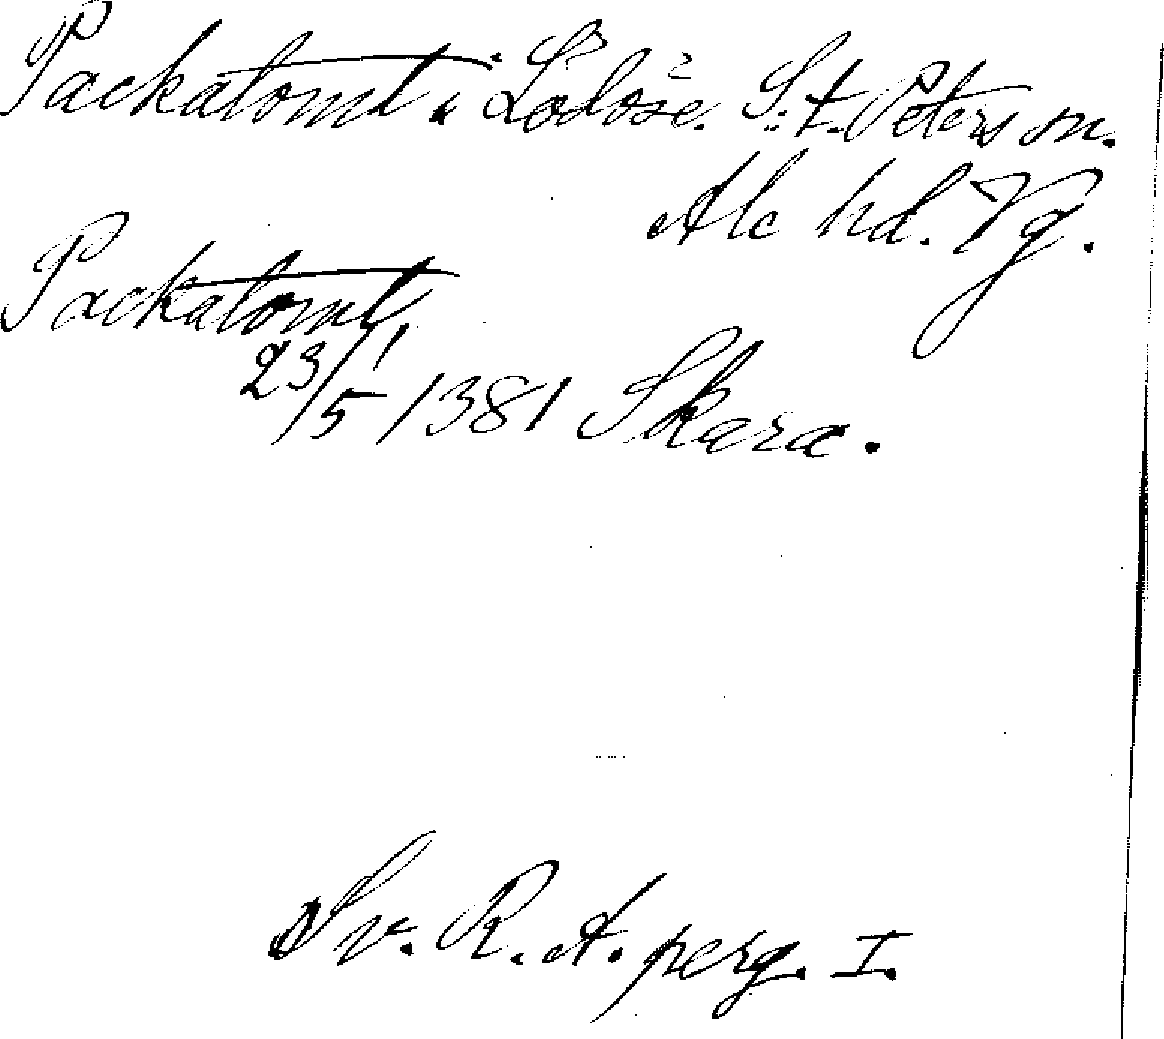 Packatomt i Lödöse. S:t. Peters sn.
Ale hd. Vg.
Packatomt,
23/5 1381 Skara.
Sv. R. A. perg. I.